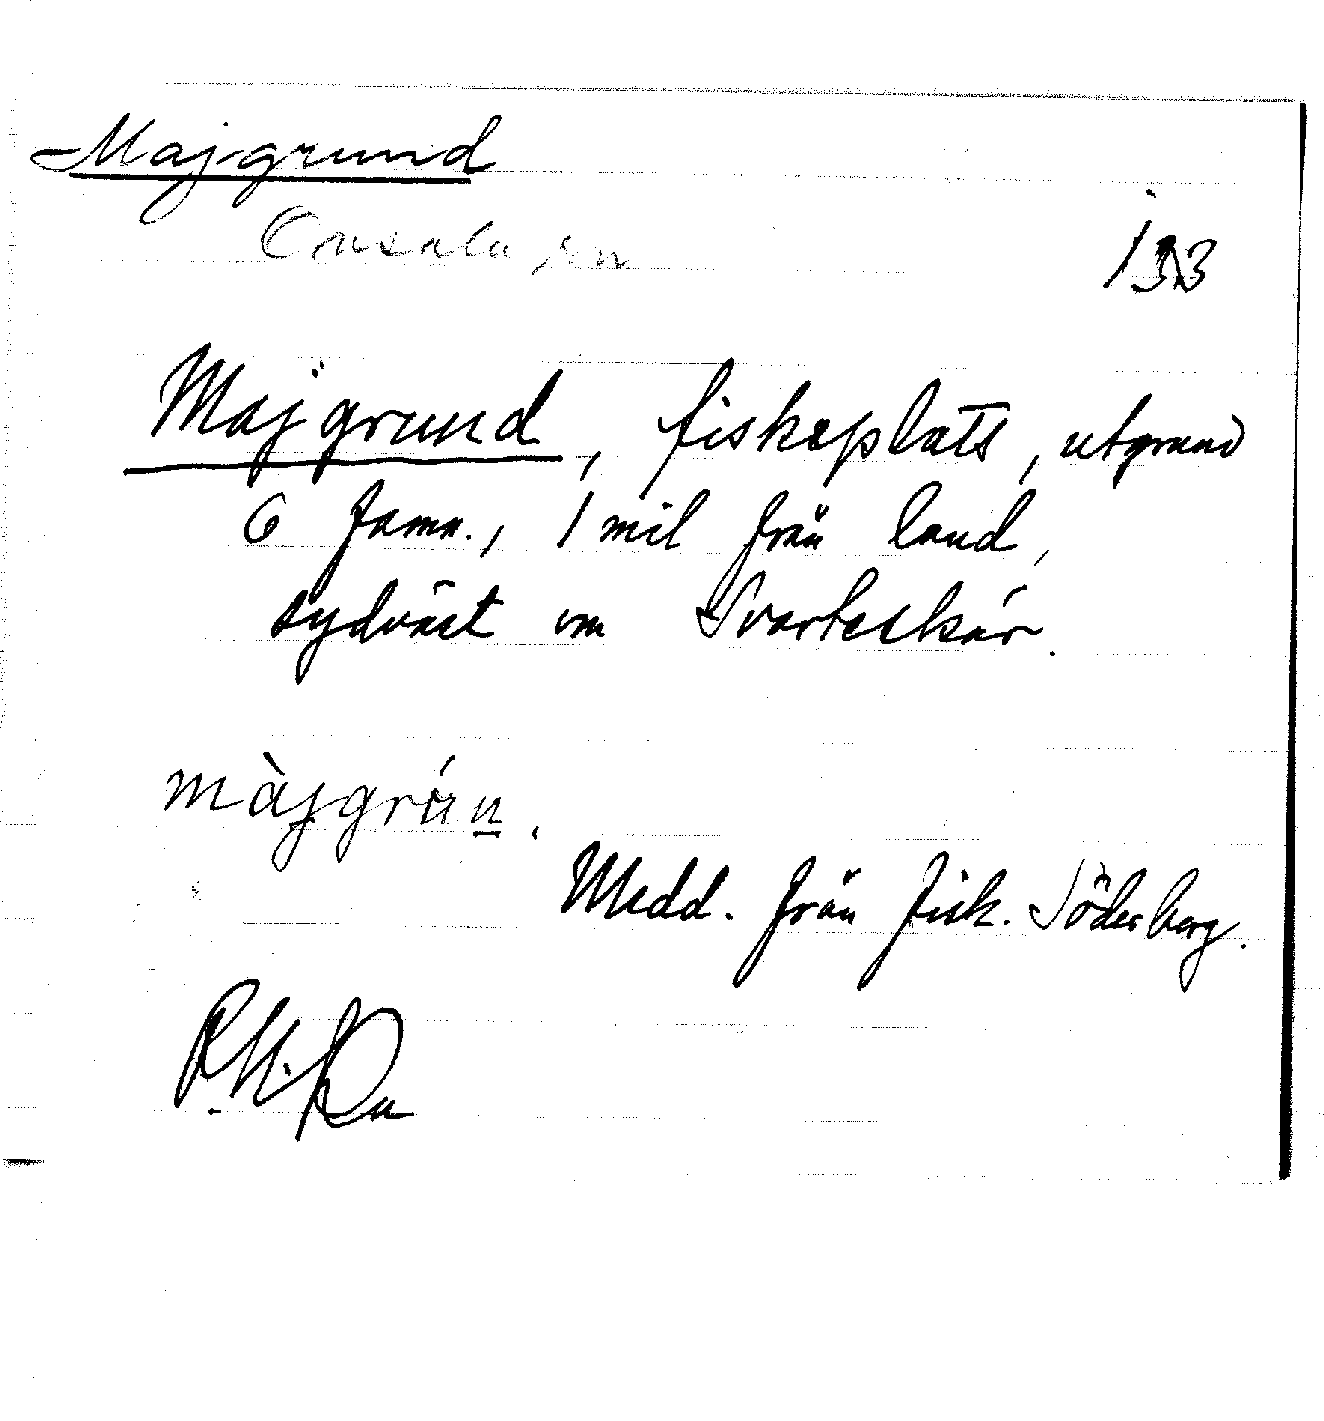 Majgrund
Onsala sn
Majgrund, fiskeplats, utgrund
6 famn., 1 mil från land,
sydväst om Svarteskär.
màjgrún.
Medd. från fisk. Söderberg.